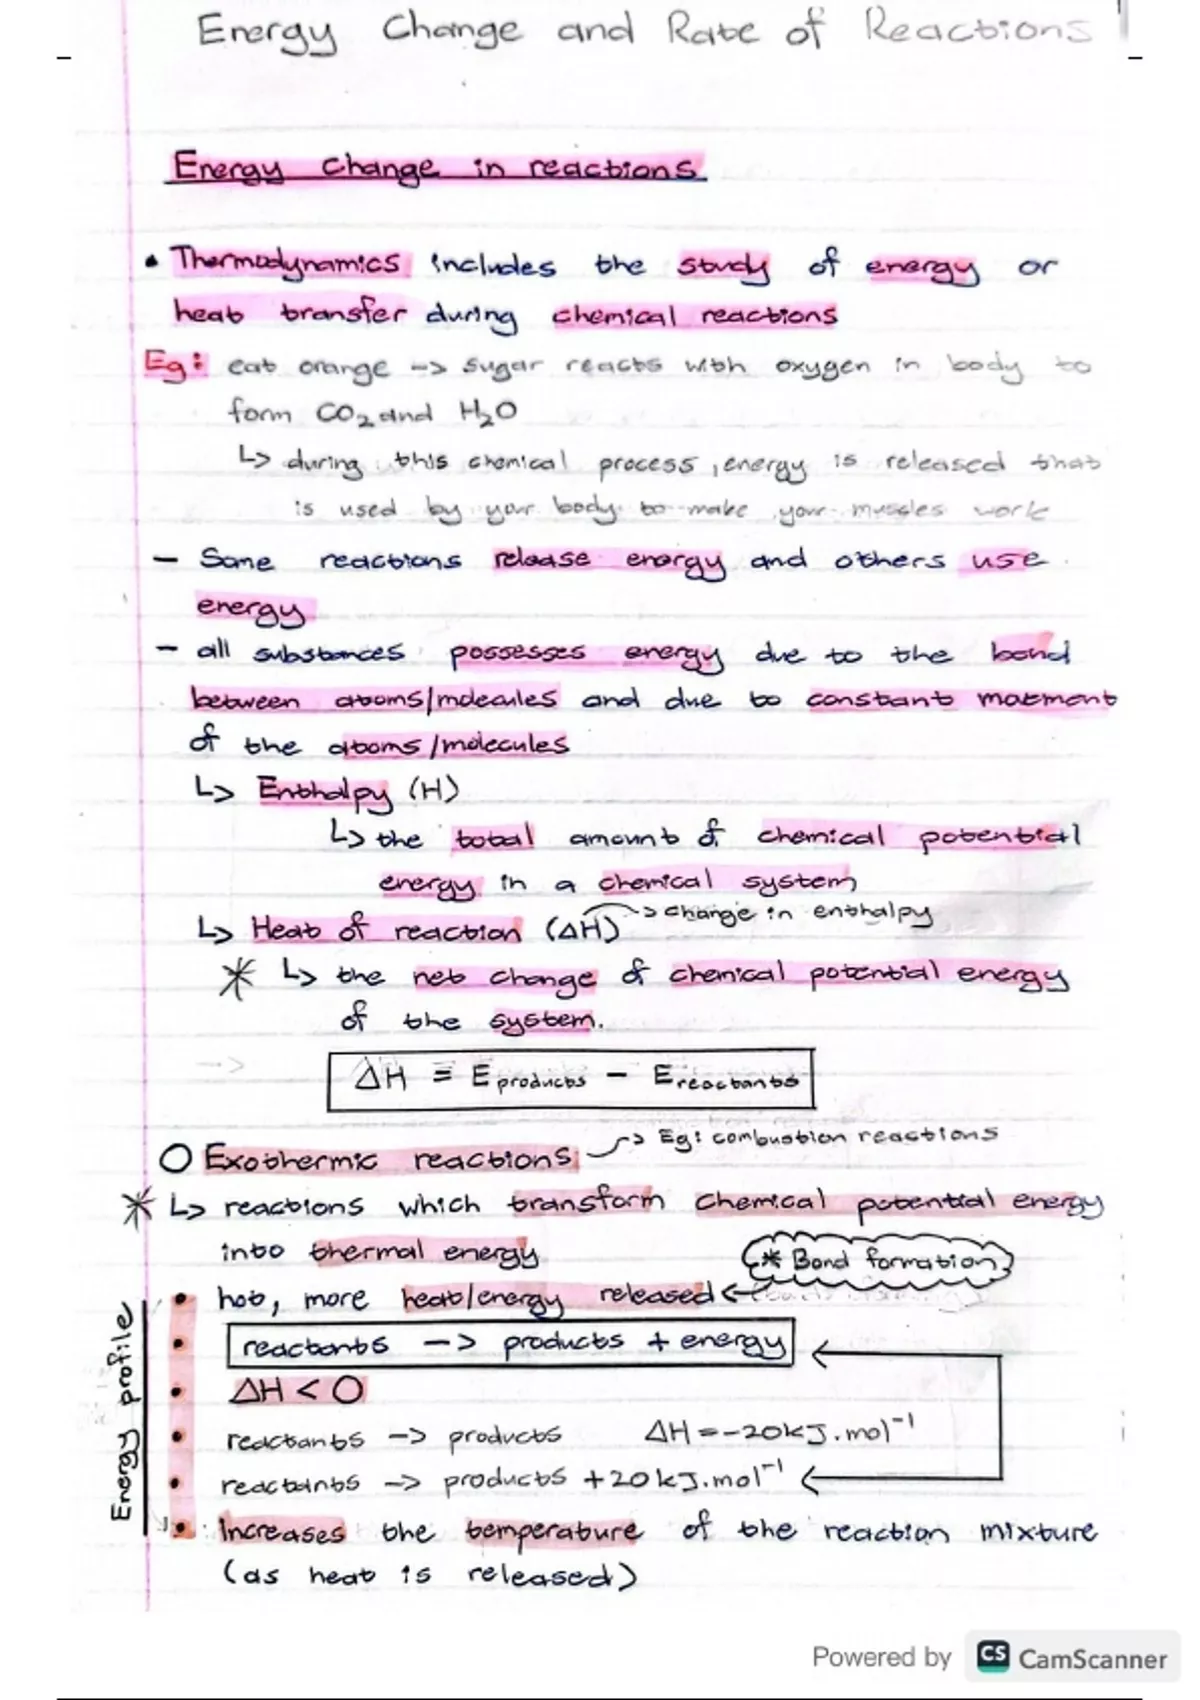 Energy Change and Rate of Reactions
Energy change in reactions
• Thermodynamics includes the study of energy or
heat transfer during chemical reactions
Eg: eat orange -> sugar reacts with oxygen in body to
form CO₂ and H₂O
↳ during this chemical process, energy is released that
is used by your body to make your muscles work
- Some reactions release energy and others use
energy
- all substances possesses energy due to the bond
between atoms/molecules and due to constant movment
of the atoms/molecules
↳ Enthalpy (H)
↳ the total amount of chemical potential
energy in a chemical system
↳ Heat of reaction (ΔH) -> change in enthalpy
* ↳ the net change of chemical potential energy
of the system.
ΔH = E products - E reactants
O Exothermic reactions -> Eg: combustion reactions
* ↳ reactions which transform chemical potential energy
into thermal energy
* Bond formation
• hot, more heat/energy released ←
• reactants -> products + energy
• ΔH < 0
• reactants -> products ΔH = -20kJ.mol⁻¹
• reactants -> products + 20kJ.mol⁻¹
• Increases the temperature of the reaction mixture
(as heat is released)
Energy profile
Powered by CS CamScanner